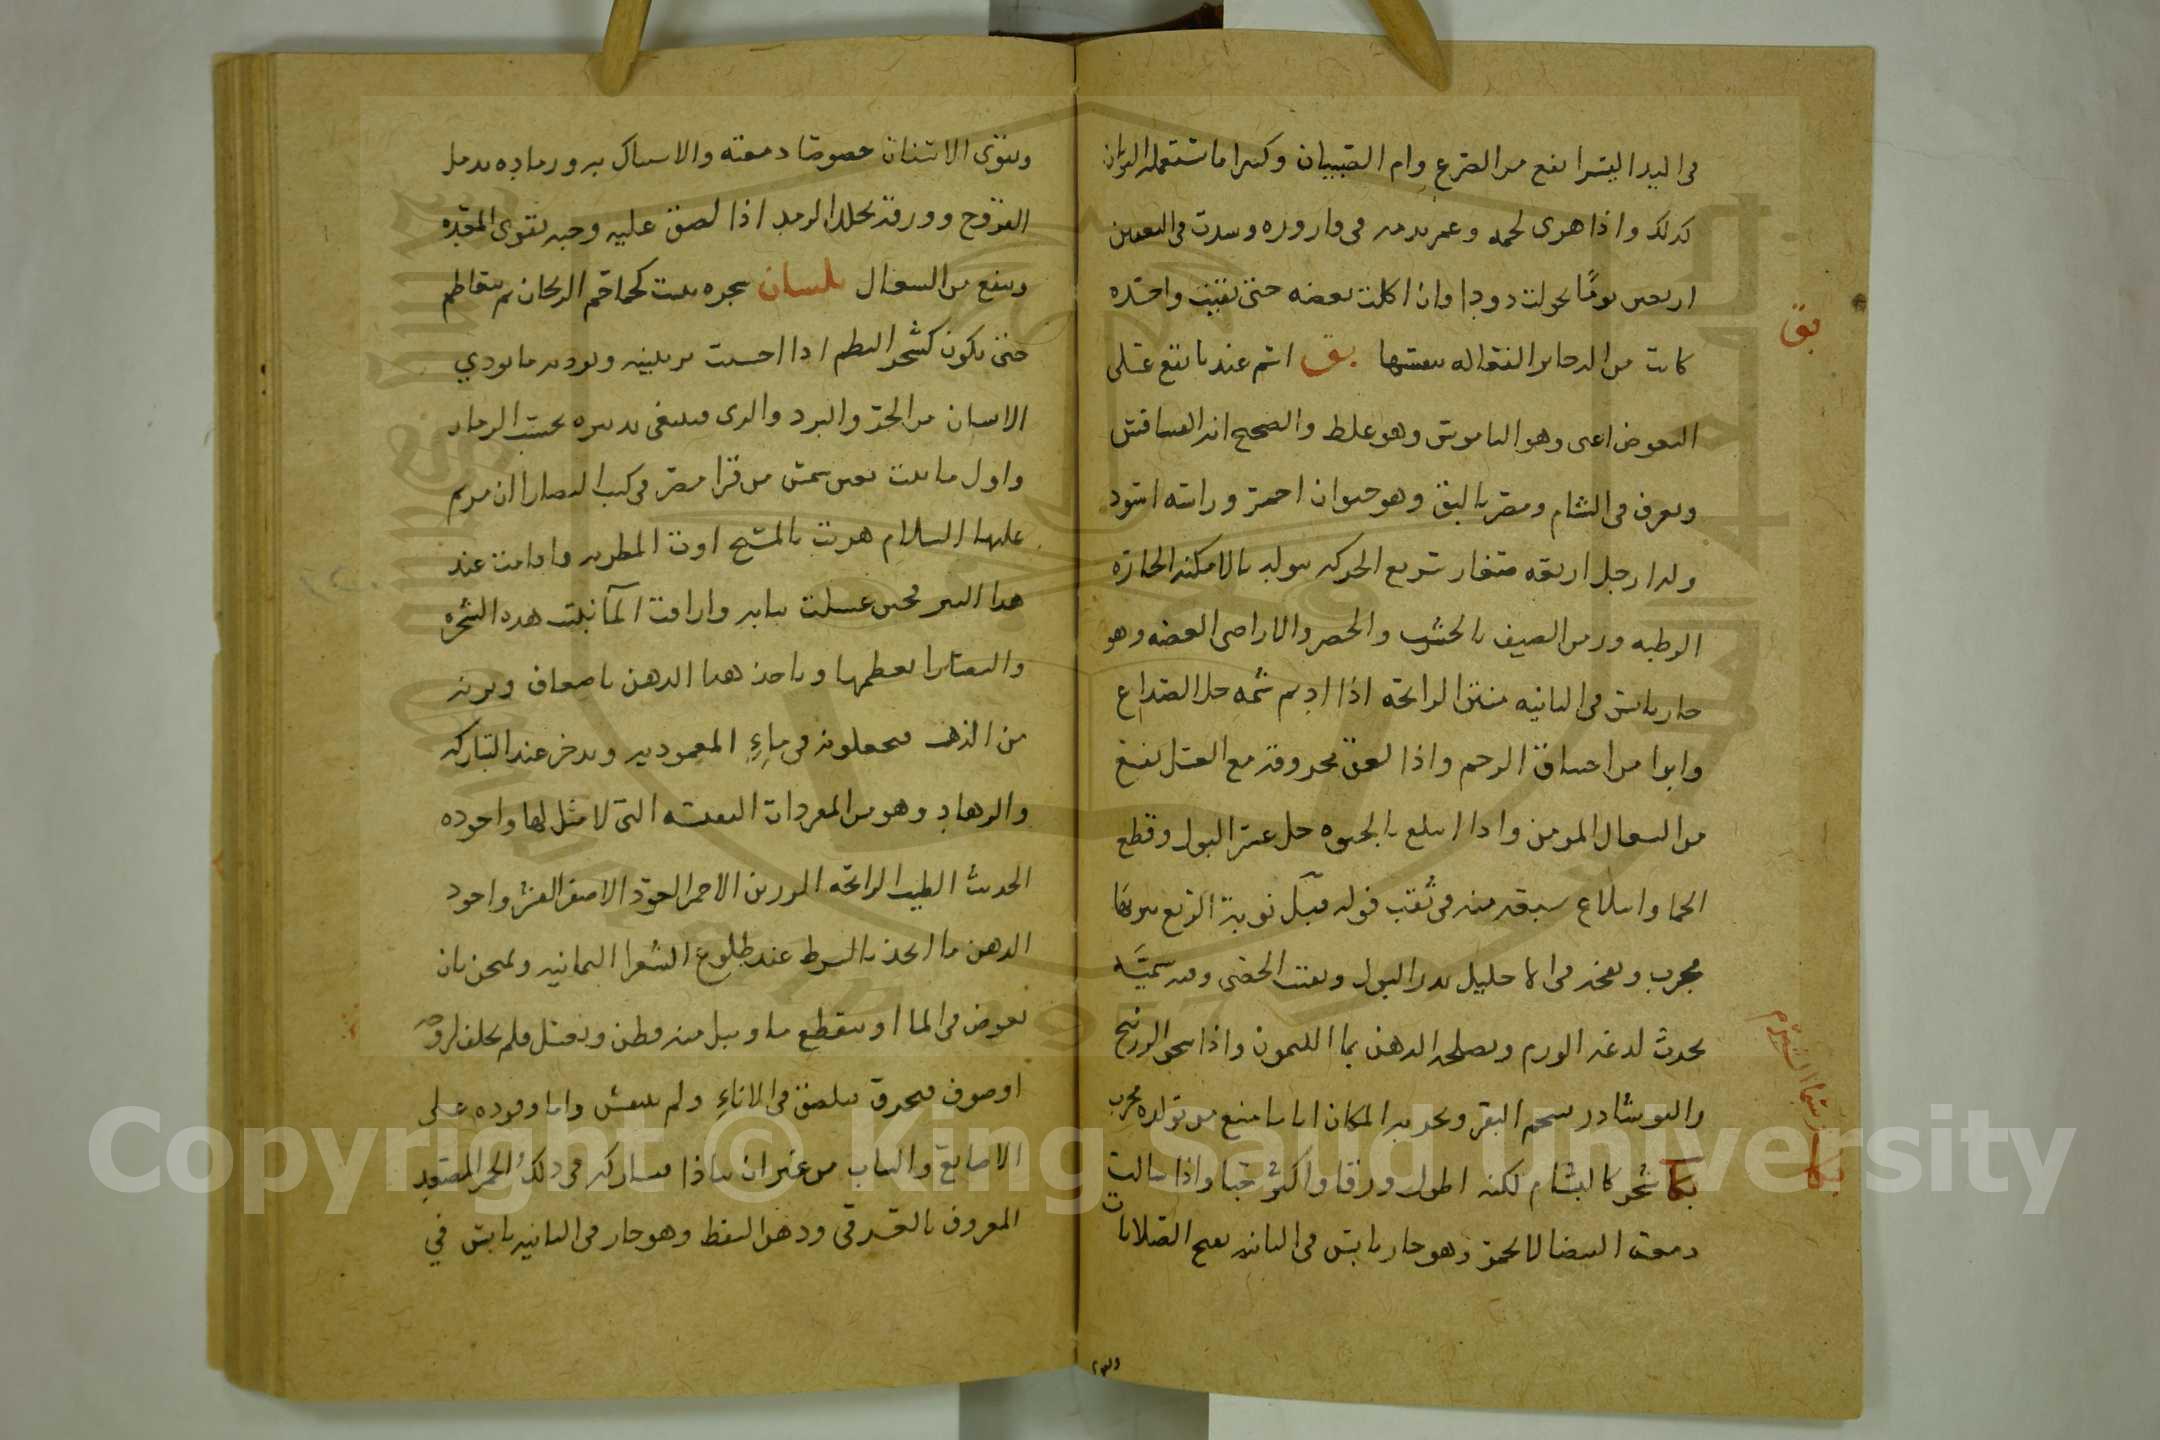 في اليد اليسرا نفع من الصرع وام الصبيان وكثيرا ما تستعمله
كذلك واذا هرى لحمه وعمر بدمه في قاروره وسدت في التعفين
اربعين يومًا تحولت دودا وان اكلت بعضه حتى بقيت واحده
كانت من الدخاير الفعاله بق اسم عندنا يقع على
البعوض اعنى وهو الناموس وهو غلط والصحيح انه الفسافس
ويعرف في الشام ومصر بالبق وهو حيوان احمر وراسه اسود
وله ارجل اربعه صغار سريع الحركه يتولد بالامكنه الحاره
الرطبه وزمن الصيف بالخشب والحصر والاراضى العفنه وهو
حار يابس في الثانيه منتن الرائحه اذا اديم شمه حل الصداع
وابرا من اختناق الرحم واذا لعق محروقه مع العسل نفع
من السعال المزمن واذا ابتلع بالجبوه حل عسر البول وقطع
الحما وابتلاع سبعه منه في ثقب فوله قبل نوبة الربع يبرئها
مجرب ونفخه في الاحليل يدر البول ويفتت الحصى وفيه سميّه
يحدث لدغه الورم ويصلحه الدهن بما الليمون واذا سحق الزرنيخ
والنوشادر بشحم البقر وبخر به المكان اياما منع من تولده مجرب
بكا شجر كالبشام لكنه اطول ورقا واكثر حبا واذا سالت
دمعته البيضا لا تحمر وهو حار يابس في الثانيه يفتح الصلابات
بق
بكا
ويقوى الاسنان خصوصا دمعته والاستياك به ورماده يدمل
القروح وورقه يحلل الرمد اذا لصق عليه وحبه يقوى المعده
وينفع من السعال بلسان شجره ينبت كحماحم الريحان ثم يتعاظم
حتى يكون كشجر البطم اذا احسنت تربيته ويوذيه ما يوذي
الانسان من الحر والبرد والرى فينبغى تدبيره بحسب الزمان
واول ما نبت بعين شمس من قرا مصر في كتب النصارا ان مريم
عليها السلام هربت بالمسيح اوت المطريه واقامت عند
هذا البير فحين غسلت ثيابه واراقت المآ نبتت هذه الشجره
والنصارا تعظمها وياخذ هذا الدهن باضعاف وزنه
من الذهب فيجعلونه في ماءِ المعموديه ويدخر عند التباركه
والرهاد وهو من المفردات النفيسه التى لا مثل لها واجوده
الحديث الطيب الرائحه الرزين الاحمر العود الاصفر القشر واجود
الدهن ما اتخذ بالشرط عند طلوع الشعرا اليمانيه ويمتحن بان
يغوص في الما او يتقطع ما وبل منه قطن وغسل فلم يخلف لزوجه
او صوف فيحرق فيلصق في الاناءِ ولم ينتفش واما وقوده على
الاصابع والثياب من غير ان تتاذا فيشاركه في ذلك الخمر المصعد
المعروف بالعرقي ودهن النفط وهو حار في الثانيه يابس في
Copyright © King Saud University